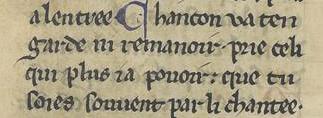 alentree Chancon va ten
garde ni remanoir prie celi
qui plus ia pouoir: que tu
soies souuent par li chantee.